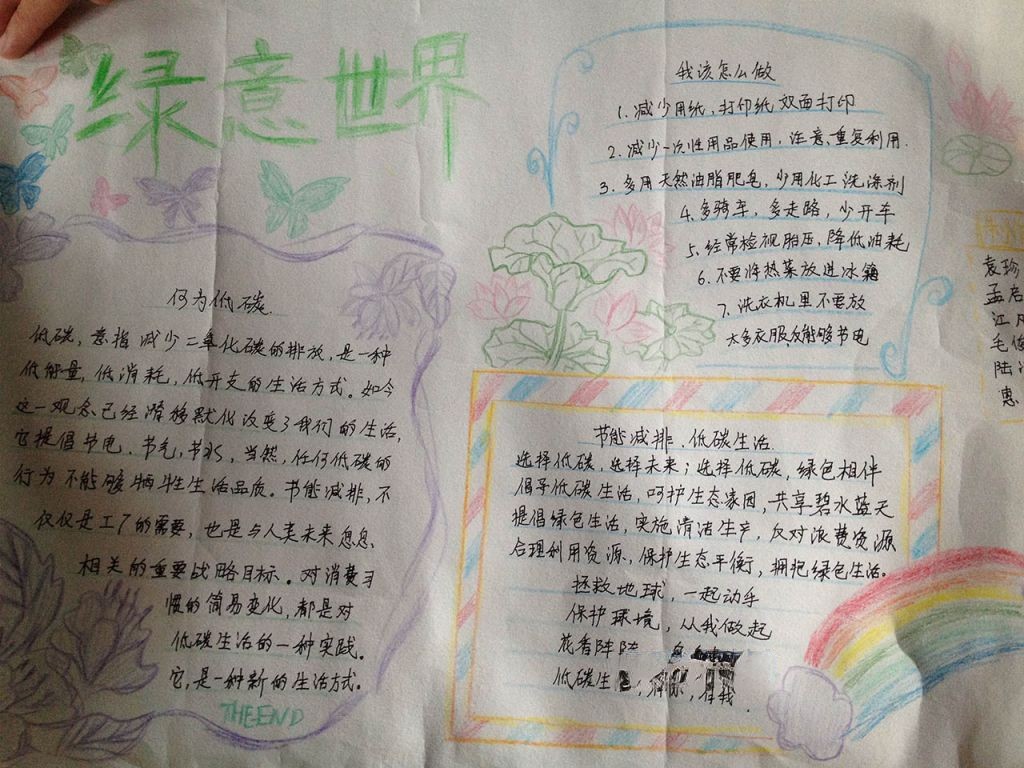 绿意世界
何为低碳
低碳，意指减少二氧化碳的排放，是一种
低能量，低消耗，低开支的生活方式。如今
这一观念已经潜移默化改变了我们的生活，
它提倡节电，节气，节水，当然，任何低碳的
行为不能够牺牲生活品质。节能减排，不
仅仅是工厂的需要，也是与人类未来息息、
相关的重要战略目标。对消费习
惯的简易变化，都是对
低碳生活的一种实践。
它，是一种新的生活方式。
THE END
我该怎么做
1. 减少用纸，打印纸双面打印
2. 减少一次性用品使用，注意重复利用.
3. 多用天然油脂肥皂，少用化工洗涤剂
4. 多骑车，多走路，少开车
5. 经常检视胎压，降低油耗
6. 不要将热菜放进冰箱
7. 洗衣机里不要放
太多衣服，能够节电
节能减排、低碳生活.
选择低碳，选择未来；选择低碳，绿色相伴
倡予低碳生活，呵护生态家园，共享碧水蓝天
提倡绿色生活，实施清洁生产，反对浪费资源
合理利用资源，保护生态平衡，拥抱绿色生活。
拯救地球，一起动手
保护环境，从我做起
花香阵阵
低碳生
袁珍
孟
江
毛
陆
惠